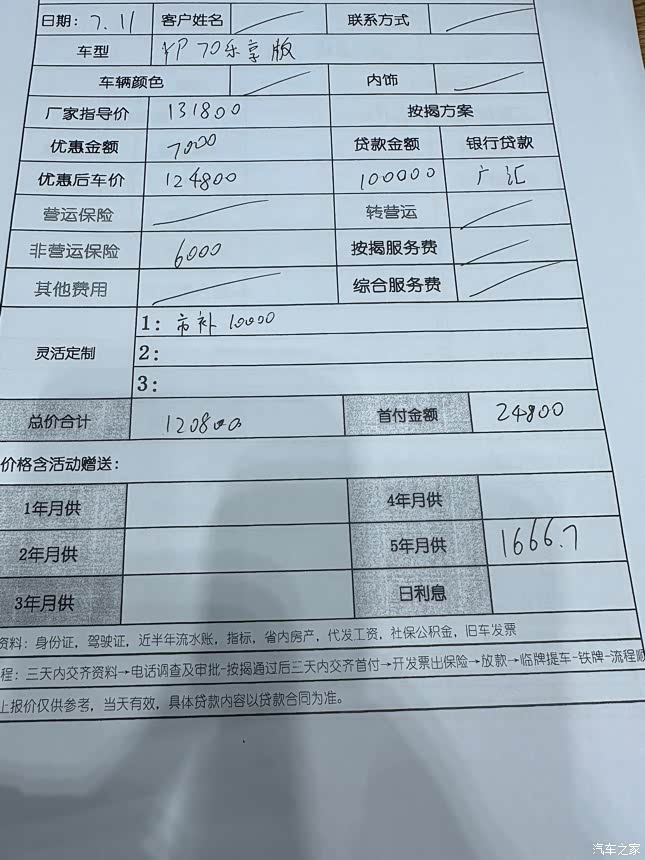 日期: 7.11 客户姓名 联系方式
车型 YP 70乐享版
车辆颜色 内饰
厂家指导价 131800 按揭方案
优惠金额 7000 贷款金额 银行贷款
优惠后车价 124800 100000 广汇
营运保险 转营运
非营运保险 6000 按揭服务费
其他费用 综合服务费
灵活定制
1: 市补 10000
2:
3:
总价合计 120800 首付金额 24800
价格含活动赠送:
1年月供 4年月供
2年月供 5年月供 1666.7
3年月供 日利息
资料: 身份证, 驾驶证, 近半年流水账, 指标, 省内房产, 代发工资, 社保公积金, 旧车发票
程: 三天内交齐资料→电话调查及审批-按揭通过后三天内交齐首付→开发票出保险→放款→临牌提车-铁牌-流程顺
上报价仅供参考, 当天有效, 具体贷款内容以贷款合同为准。
汽车之家